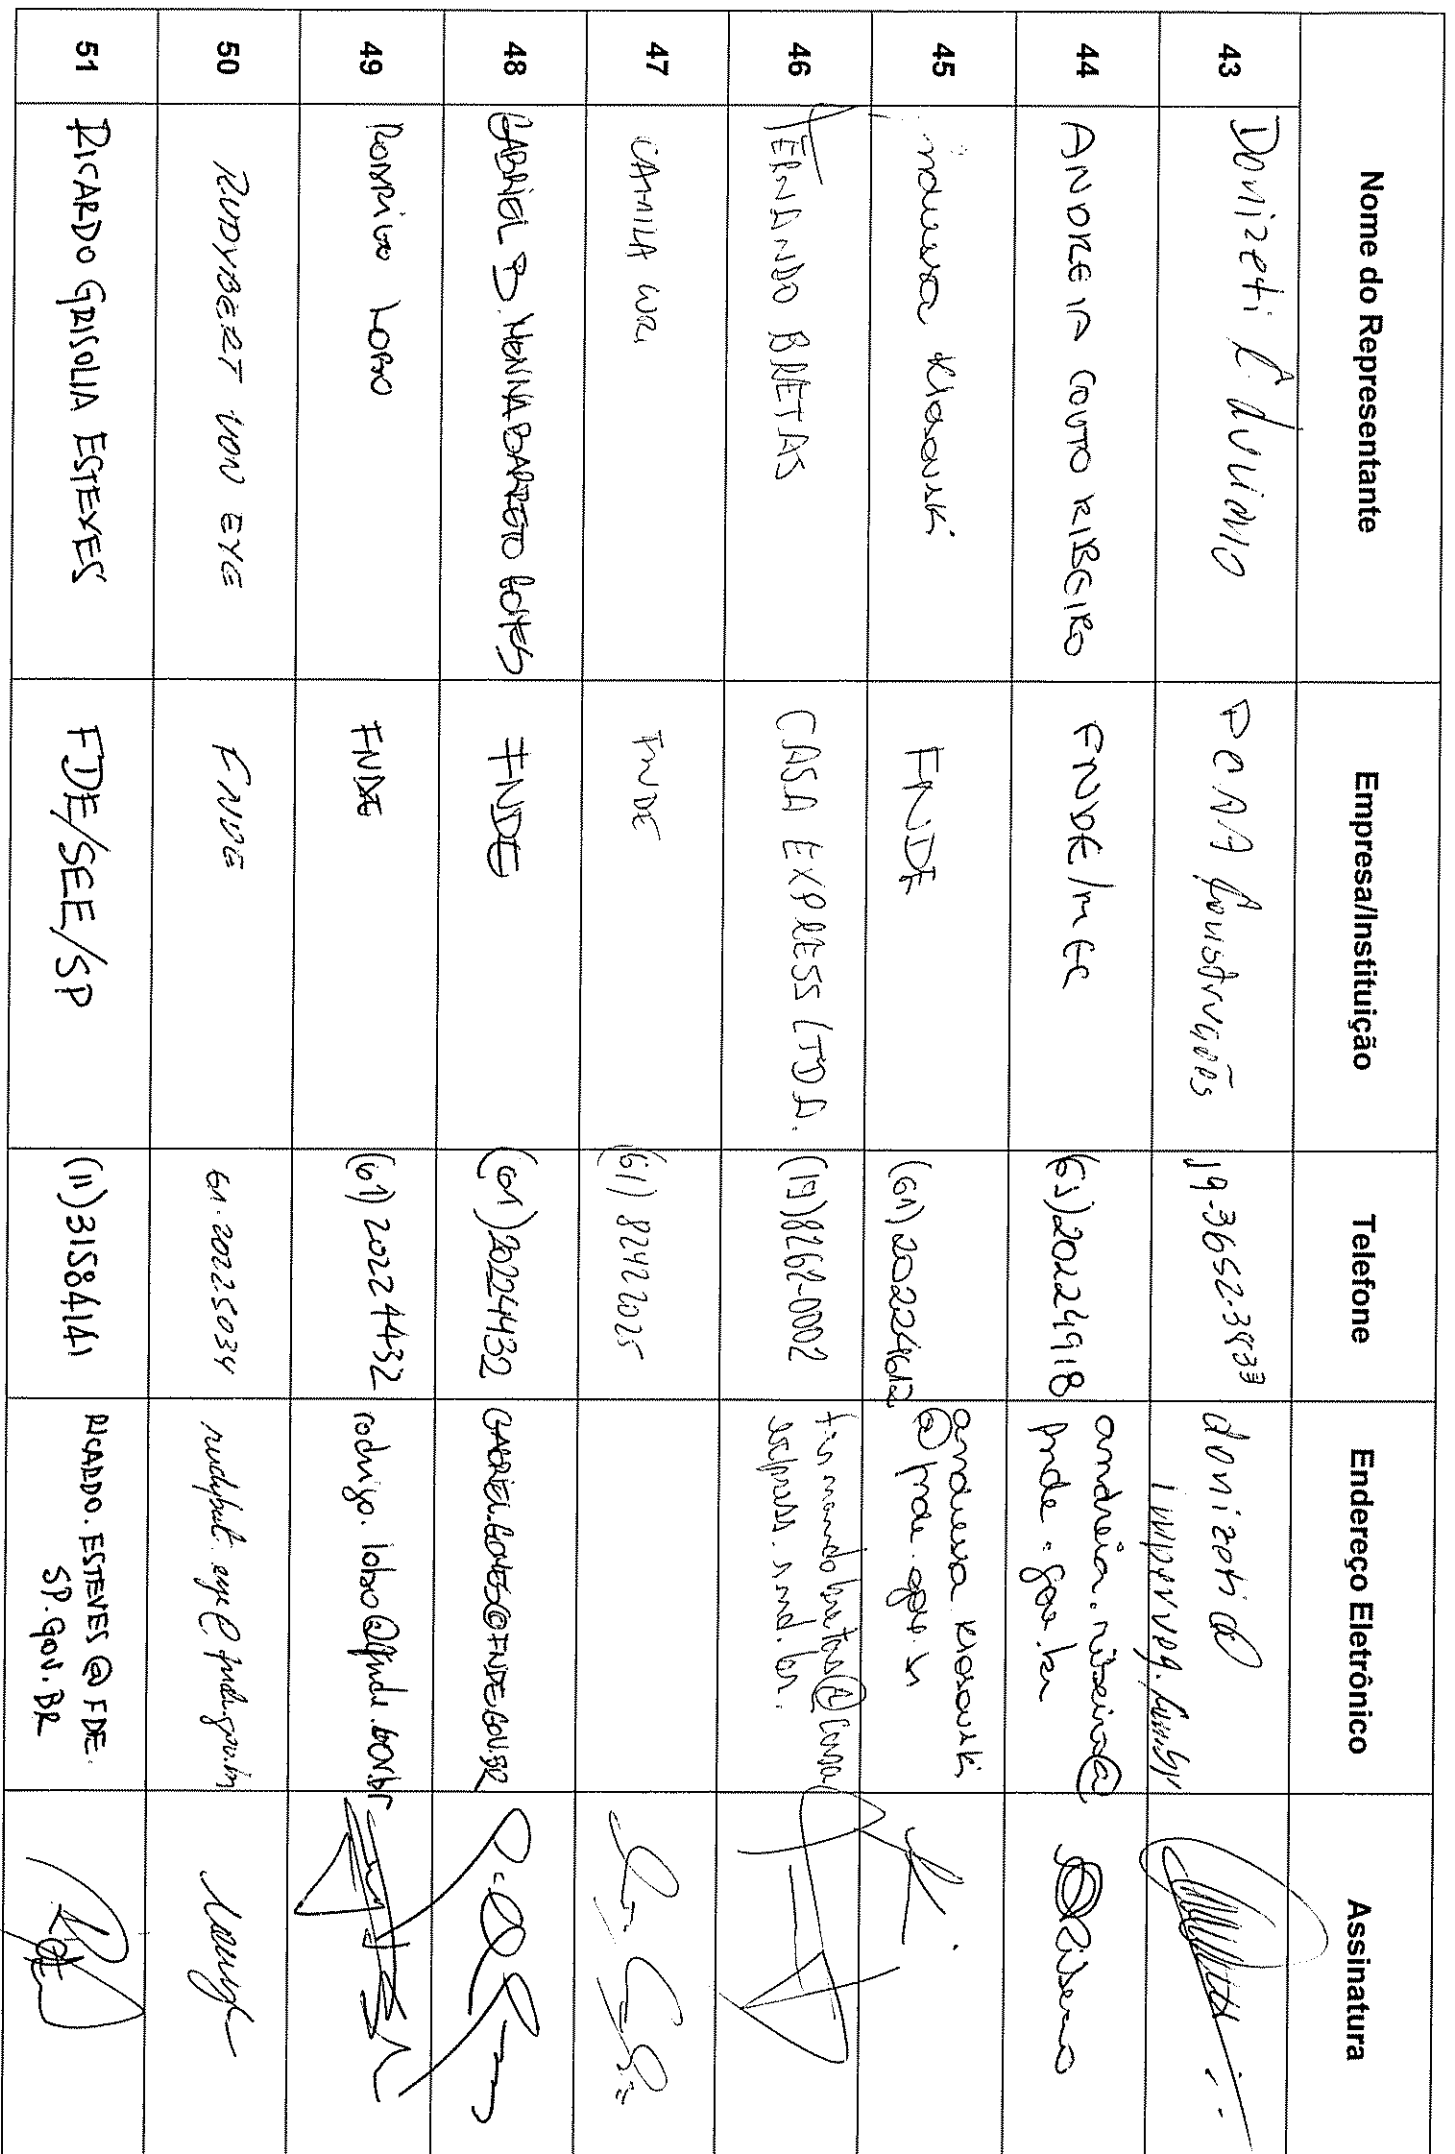 Nome do Representante Empresa/Instituição Telefone Endereço Eletrônico Assinatura
43 Donizeti Construções 19-3652-3833 donizeti@
44 ANDREIA COUTO RIBEIRO FNDE/MEC (61)20224918 andreia.ribeiro@
fnde.gov.br
45 Klosouski FNDE (61)20224612 andressa.klosouski
@fnde.gov.br
46 FERNANDO BRETAS CASA EXPRESS LTDA. (19)8262-0002 fernandobretas@casa
express.ind.br.
47 CAMILA FNDE (61) 82422025
48 GABRIEL B. MENNA BARRETO GOMES FNDE (61)20224432 GABRIEL.GOMES@FNDE.GOV.BR
49 RODRIGO LOBO FNDE (61) 20224432 rodrigo.lobo@fnde.gov.br
50 RUDYBERT VON EYE FNDE 61.20225034 rudybert.eye@fnde.gov.br
51 RICARDO GRISOLIA ESTEVES FDE/SEE/SP (11)31584141 RICARDO.ESTEVES@FDE.
SP.GOV.BR